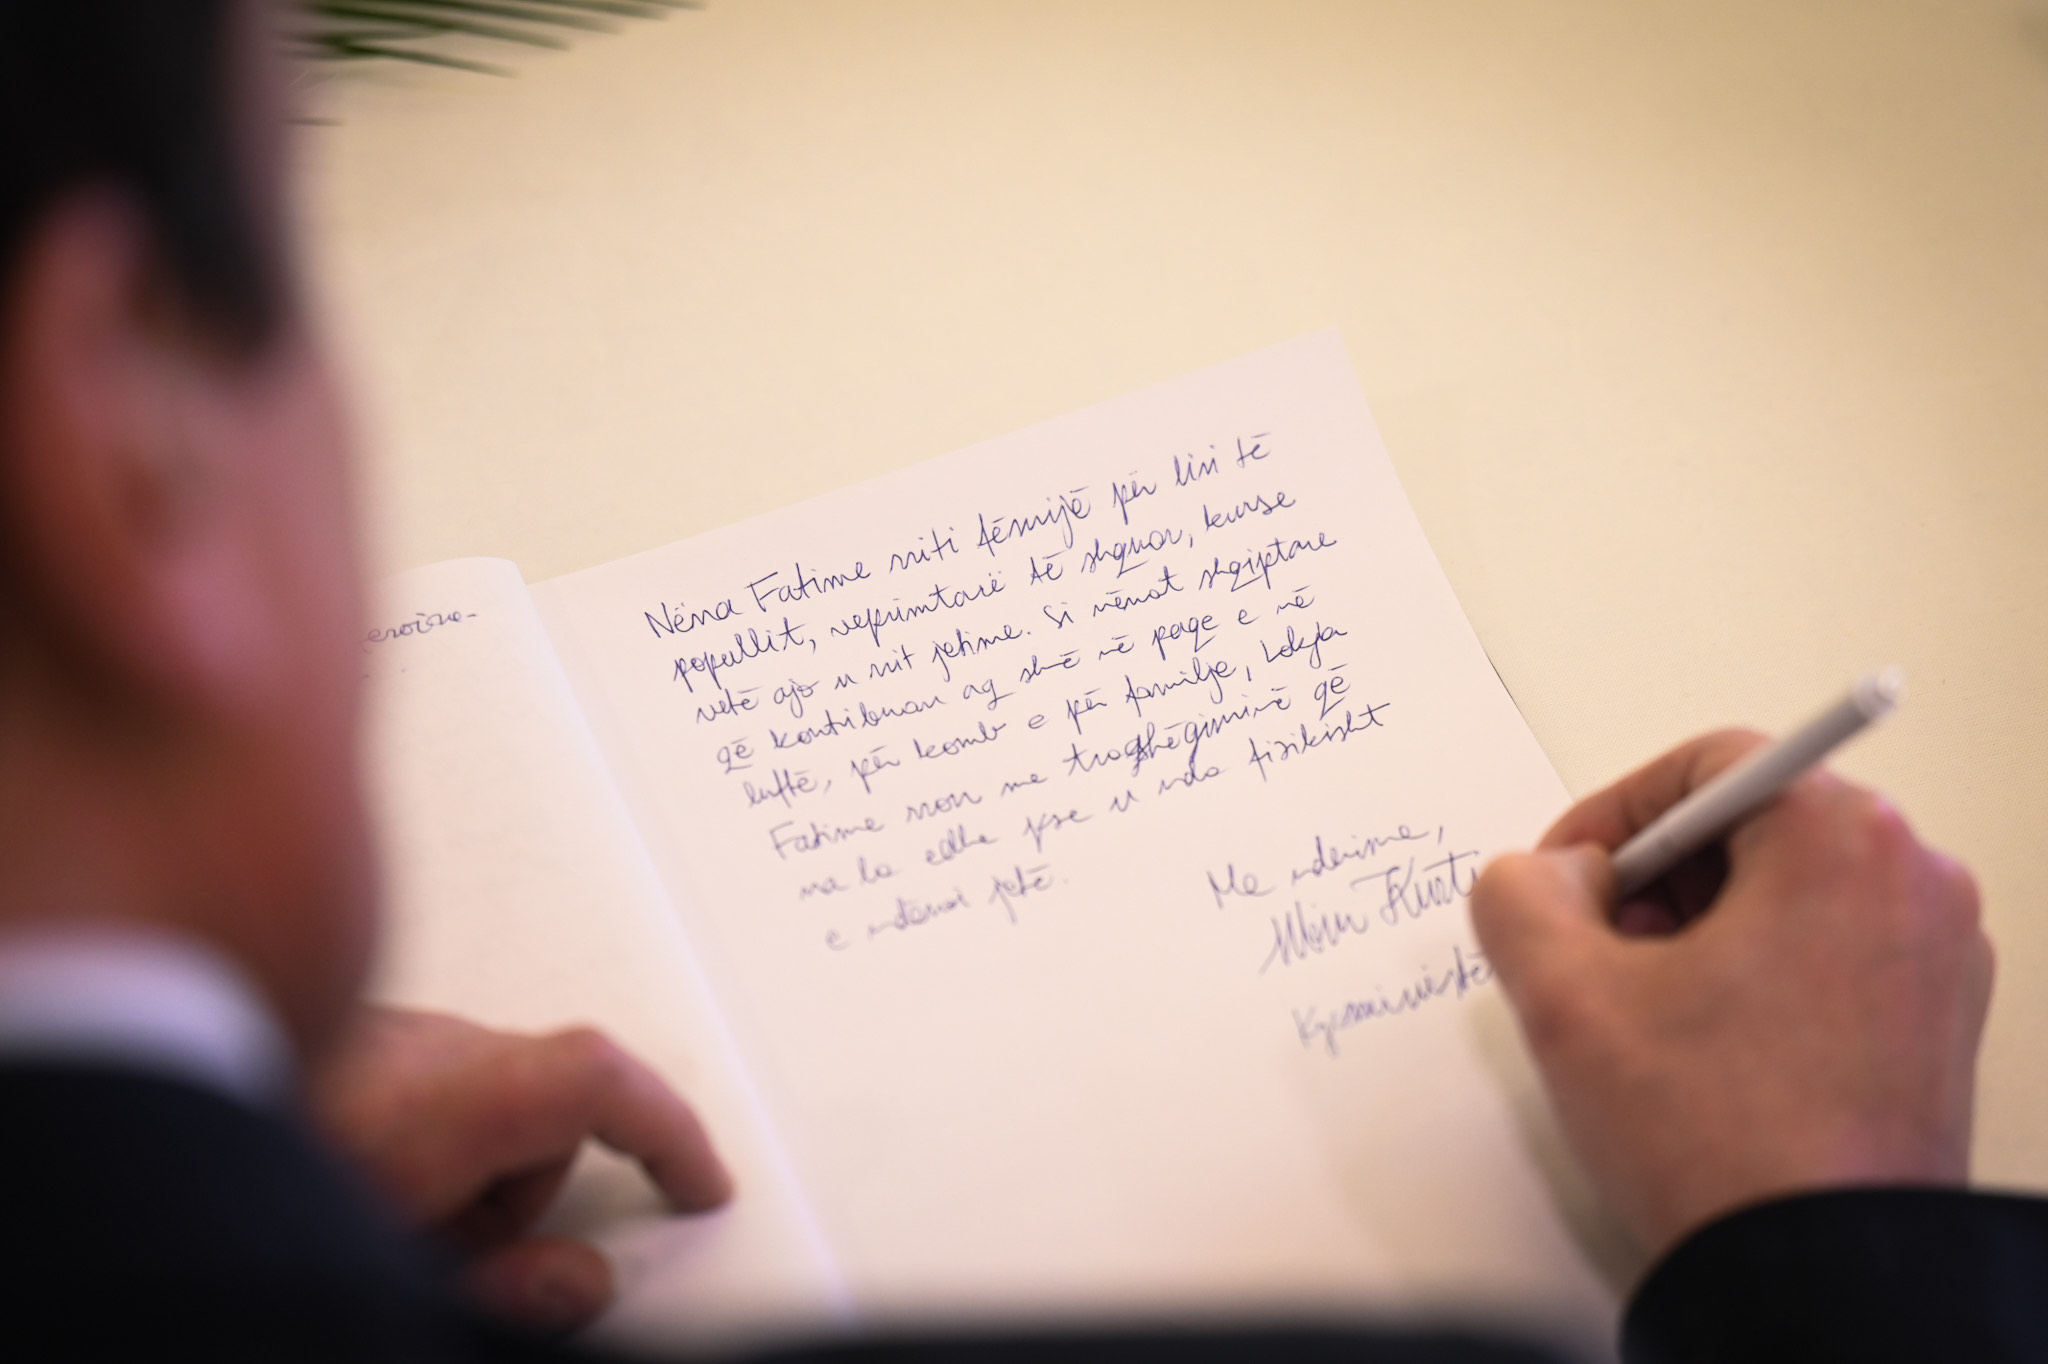 eroine-
Nëna Fatime rriti fëmijë për liri të
popullit, veprimtarë të shquar, kurse
vetë ajo u rrit jetime. Si nënat shqiptare
që kontribuan aq shë në paqe e në
luftë, për komb e për familje, Lokja
Fatime rron me trashëgiminë që
na la edhe pse u nda fizikisht
e ndërroi jetë.
Me nderime,
Albin Kurti
Kryeministë